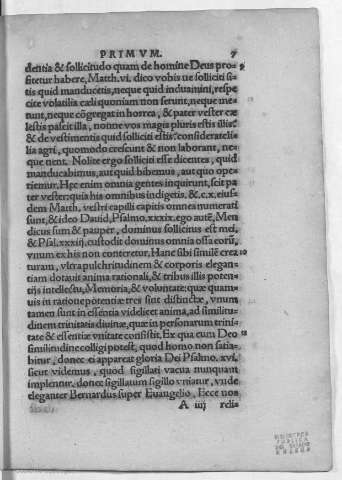 PRIMVM. 7
dentia & sollicitudo quam de homine Deus pro-
fitetur habere, Matth. vi. dico vobis ne solliciti si-
tis quid manducetis, neque quid induamini, respi
cite volatilia cæli quoniam non serunt, neque me-
tunt, neque cōgregāt in horrea, & pater vester cæ
lestis pascit illa, nonne vos magis pluris estis illis:
& de vestimentis quid solliciti estis: considerate li-
lia agri, quomodo crescunt & non laborant, ne-
que nent. Nolite ergo solliciti esse dicentes, quid
manducabimus, aut quid bibemus, aut quo ope-
riemur. Hęc enim omnia gentes inquirunt, scit pa
ter vester: quia his omnibus indigetis. & c.x. eius-
dem Matth. vestri capilli capitis omnes numerati
sunt, & ideo Dauid, Psalmo. xxxix. ego autē, Men
dicus sum & pauper, dominus sollicitus est mei,
& Psal. xxxiij. custodit dominus omnia ossa eorū,
vnum ex his non conteretur. Hanc sibi similē crea
turam, vltra pulchritudinem & corporis elegan-
tiam dotauit anima rationali, & tribus illis poten-
tijs intellectu, Memoria, & voluntate: quæ quam-
uis in ratione potentiæ tres sint distinctæ, vnum
tamen sunt in essentia videlicet anima, ad similitu-
dinem trinitatis diuinæ, quæ in personarum trini-
tate & essentiæ vnitate consistit. Ex qua cum Deo
similitudine colligi potest, quod homo non satia-
bitur, donec ei appareat gloria Dei Psalmo. xvi.
sicut videmus, quod sigillati vacua nunquam
implentur, donec sigillatum sigillo vniatur, vnde
eleganter Bernardus super Euangelio, Ecce nos
A iiij rclis